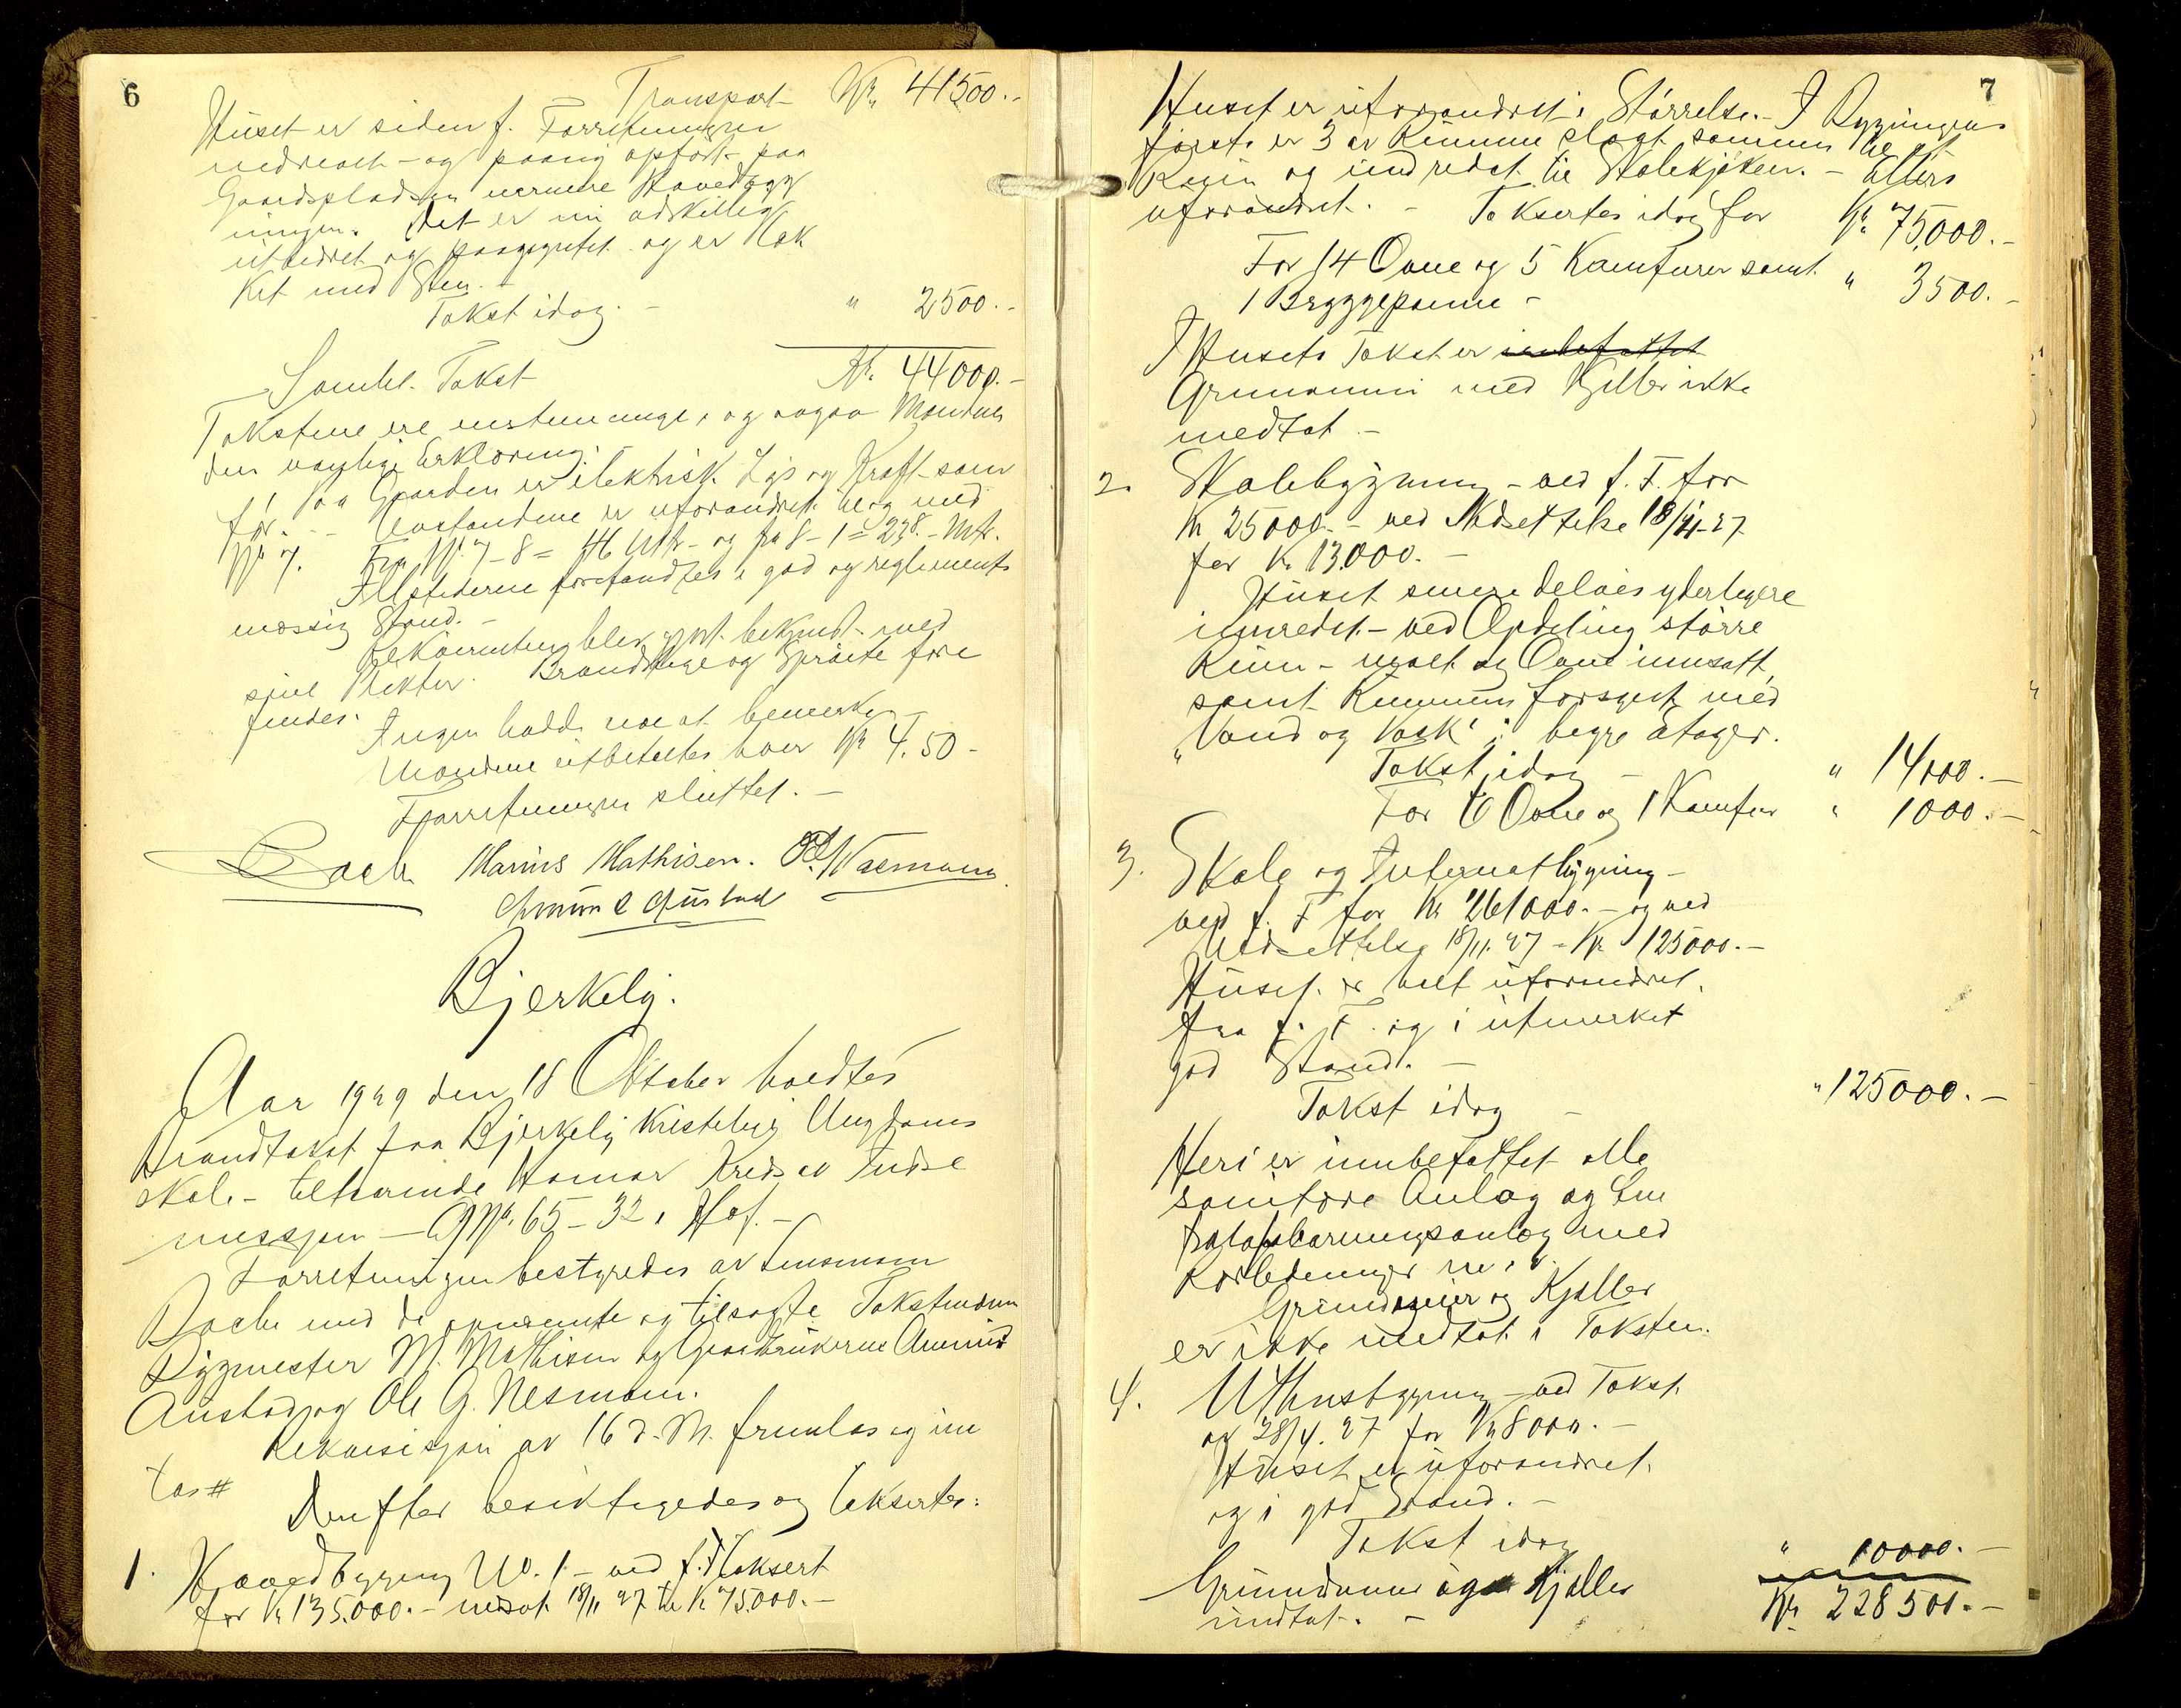 6
Transport Kr. 41500.-
Huset er siden f. Forretningen
nedrevet - og paany opført paa
Gaardspladsen nærmere Hovedbyg
ningen. Det er nu adskillig
utbedret og og er tæk
ket med Sten. -
Takst idag. - " 2500.-
Samlet Takst Kr. 44000.-
Takstene ere enstemmige, og avgav Mændene
den vanlige Erklæring.
Paa Gaarden er elektrisk Lys og Kraft som
før. - Avstandene er uforandret til og med
No 7. Fra No. 7 - 8 = 46 Mtr - og fra 8 - 1 = 238. - Mtr.
Ildstederne forefandtes i god og reglements
mæssig Stand. -
Rekvirenten blev gjort bekjendt med
sine Plikter. Brandstige og Sprøite fore
findes.
Ingen hadde noe at bemerke -
Mændene utbetaltes hver Kr 4.50 -
Forretningen sluttet. -
Bach Marius Mathisen. O G Næsmann
Amund Austad
Bjerkely.
Aar 1929 den 18 Oktober holdtes
Brandtakst paa Bjerkely Kristelig Ungdoms
skole - tilhørende Hamar Kreds av Indre
missjon - G No. 65 - 32 i Hof. -
Forretningen bestyredes av Lensmann
Bach med de opnævnte og tilsagte Takstmænn
Bygmester M. Mathisen og Gaardbrukerne Amund
Austad og Ole G. Nesmann.
Rekvisisjon av 16 d. M. fremlas og inn
tas #
Derefter besiktigedes og takserttes:
1. Hovedbygning No. 1 - ved f. F. taksert
for Kr 135.000. - nedsat 18/11 27 til Kr 75.000. -
7
Huset er uforandret i Størrelse. - I Bygningens
første er 3 av Rummene slagt sammen til et
og indredet til Skolekjøken. - Ellers
uforandret. - Taksertes idag for Kr. 75,000. -
For 14 Ovne og 5 Komfurer samt
1 Bryggepanne - " 3500. -
I Husets Takst er innbefattet
Grunnmur med Kjeller ikke
medtat -
2. Skolebygning - ved f. F. for
Kr 25000. - ved Nedsettelse 18/11-27
for Kr. 13.000. -
Huset senere delvis yderligere
innredet - ved Opdeling større
Rum - malt og Ovne innsatt,
samt Rummene forsynt med
"Vand og Vask" i begge Etager.
Takst idag - " 14,000. -
For 6 Ovne og 1 Komfur " 1000. -
3. Skole og Internatbygning -
ved f. F for Kr 261000. - og ved
Nedsettelse 18/11. 27 - Kr 125000. -
Huset er helt uforandret
fra f. F. og i utmerket
god Stand. -
Takst idag - " 125000. -
Heri er innbefattet alle
sanitære Anlæg og Sen
tralopvarmingsanlæg med
Rørledninger m. v.
Grundmur og Kjeller
er ikke medtat i Taksten.
4. Uthusbygning - ved Takst
av 28/4. 27 for Kr 8000. -
Huset er uforandret
og i god Stand. -
Takst idag " 10000. -
Grundmur og Kjeller
medtat. - Kr 228501. -